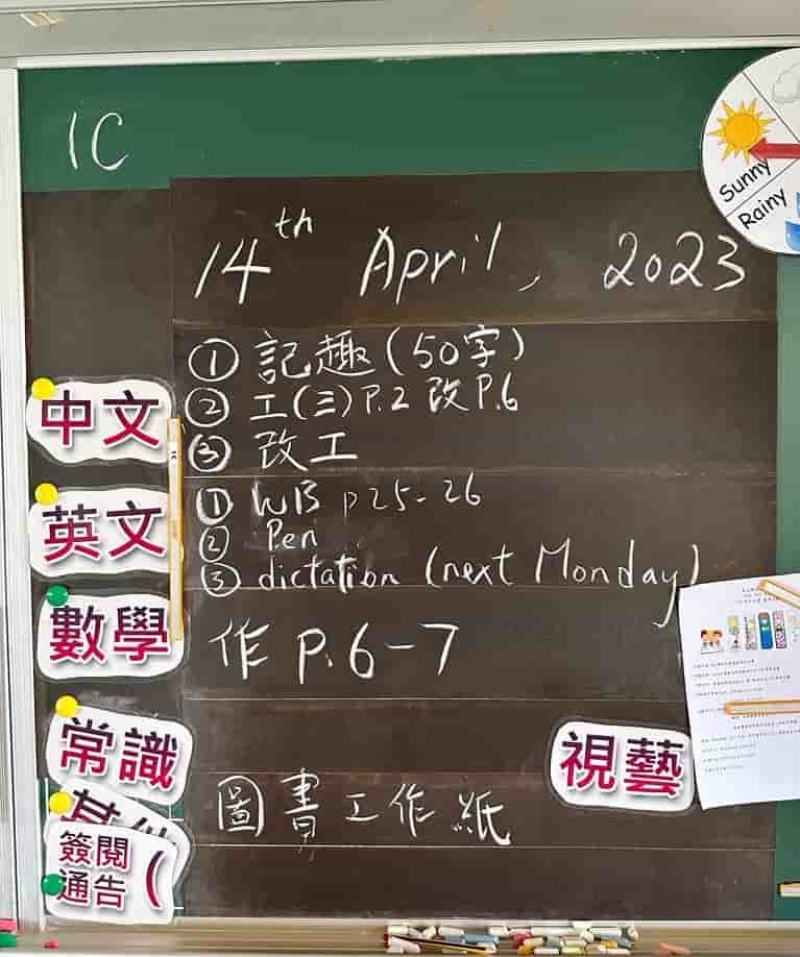 1C
Sunny
Rainy
14th April, 2023
中文
① 記趣(50字)
② 工(三)P.2 改P.6
③ 改工
英文
① WB p25-26
② Pen
③ dictation (next Monday)
數學
作 P.6-7
常識
視藝
其他
圖書工作紙
簽閱
通告 (